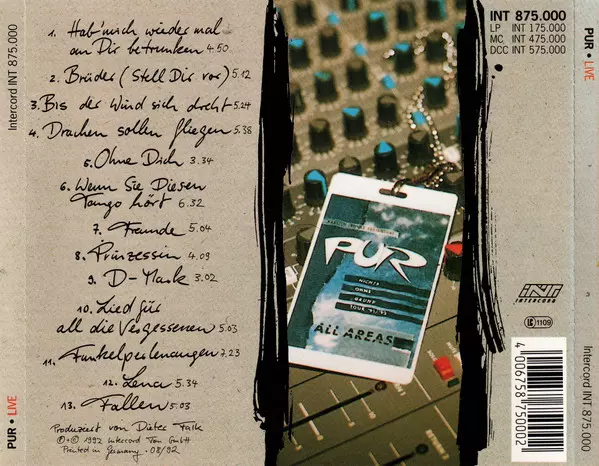 Intercord INT 875.000
PUR • LIVE
1. Hab' mich wieder mal
an Dir betrunken 4.50
2. Brüder (Stell Dir vor) 5.12
3. Bis der Wind sich dreht 5.24
4. Drachen sollen fliegen 5.38
5. Ohne Dich 3.34
6. Wenn Sie Diesen
Tango hört 6.32
7. Freunde 5.04
8. Prinzessin 4.09
9. D-Mark 3.02
10. Lied für
all die Vergessenen 5.03
11. Funkelperlenaugen 7.23
12. Lena 5.34
13. Fallen 5.03
Produziert von Dieter Falk
℗+© 1992 Intercord Ton GmbH
Printed in Germany - 08/92
PUR
NICHTS
OHNE
GRUND
TOUR
ALL AREAS
INT 875.000
LP INT 175.000
MC INT 475.000
DCC INT 575.000
INT
INTERCORD
LC 1109
4 006758 750002
PUR • LIVE
Intercord INT 875.000